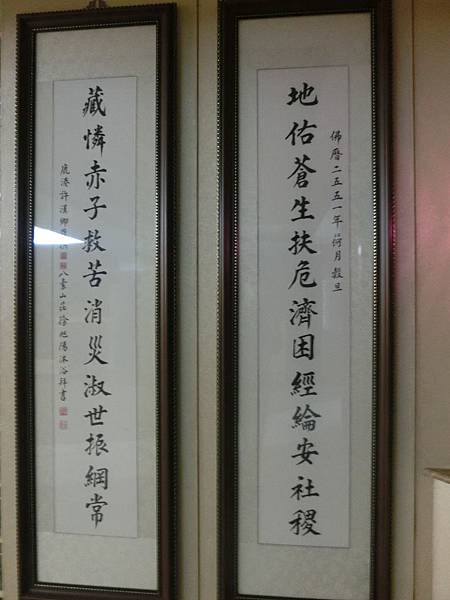 佛曆二五五一年荷月穀旦
地佑蒼生扶危濟困經綸安社稷
藏憐赤子救苦消災淑世振綱常
鹿港許漢卿 山莊徐旭陽沐浴拜書